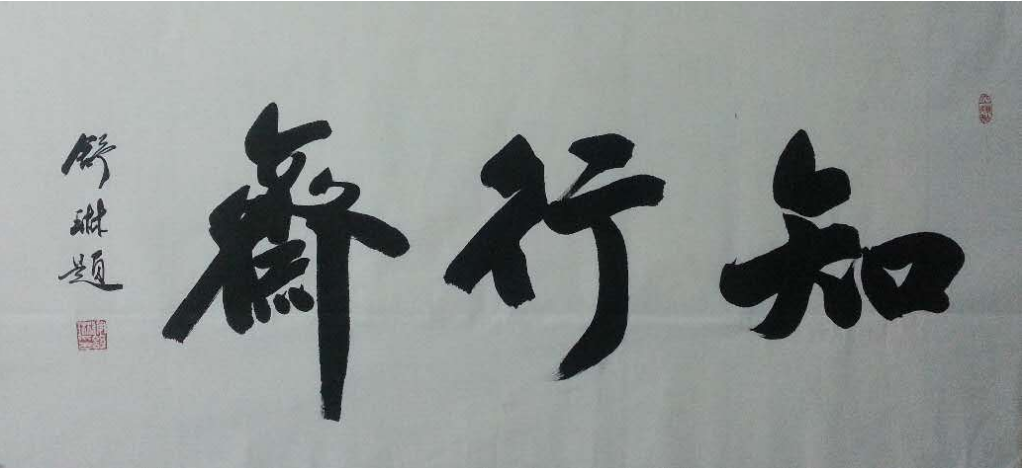 知行齋
舒琳題